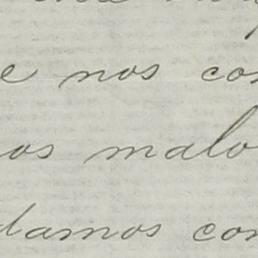 e nos con
os malo
damos con